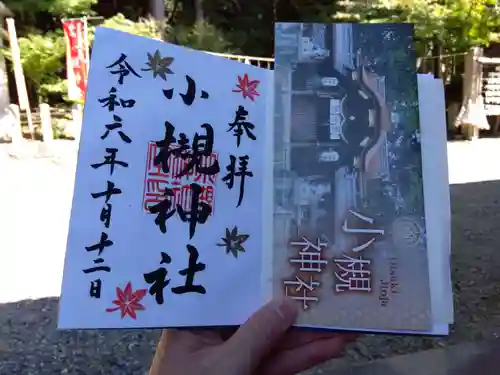 奉拝
小槻神社
令和六年十月十二日
小槻
神社
Jinja